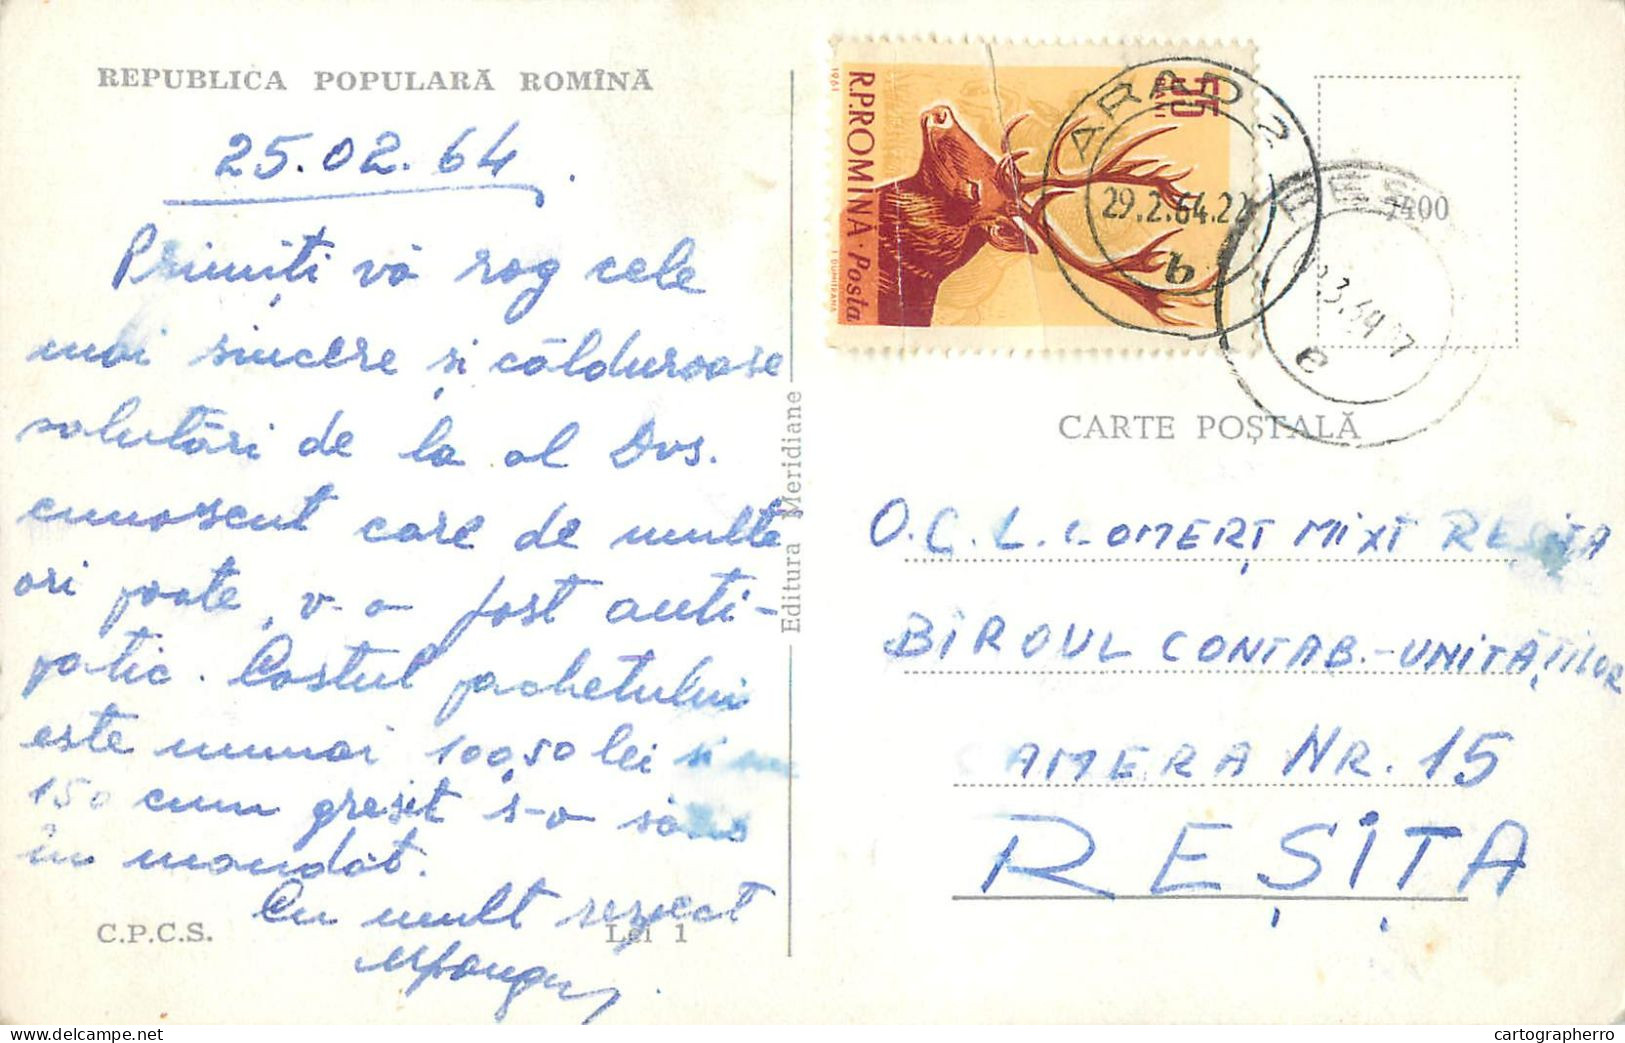 REPUBLICA POPULARĂ ROMÎNĂ
25.02.64.
Primiți vă rog cele
mai sincere și călduroase
salutări de la al Dvs.
cunoscut care de multe
ori poate, v-a fost anti-
patic. Costul pachetului
este numai 100,50 lei și nu
150 cum greșit s-a
în mandat.
Cu mult respect
C.P.C.S.
Lei 1
Editura Meridiane
55
BANI
R.P.ROMÎNĂ · Posta
1961
I. DUMITRANA
ARAD 2
29.2.64.22
b
REȘ
.3.64
e
7400
CARTE POȘTALĂ
O.C.L. COMERȚ MIXT RESITA
BIROUL CONTAB.-UNITĂȚILOR
CAMERA NR. 15
REȘIȚA
cartographerro